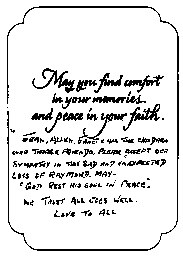 May you find comfort
in your memories.
and peace in your faith.
ALLEN, & ALL THE CHILDREN
AND PLEASE ACCEPT OUR
SYMPATHY IN THE SAD AND UNEXPECTED
LOSS OF RAYMOND. MAY-
"GOD REST HIS SOUL IN PEACE".
WE TRUST ALL GOES WELL.
LOVE TO ALL